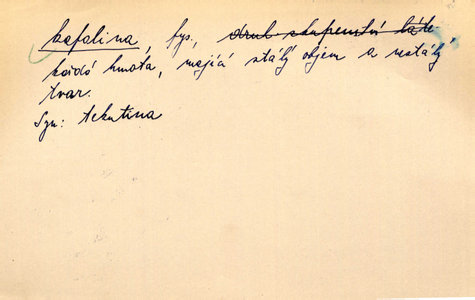 kapalina, fys., druh skupenství látek
každá hmota, mající stálý objem a nestálý
tvar.
Syn: tekutina